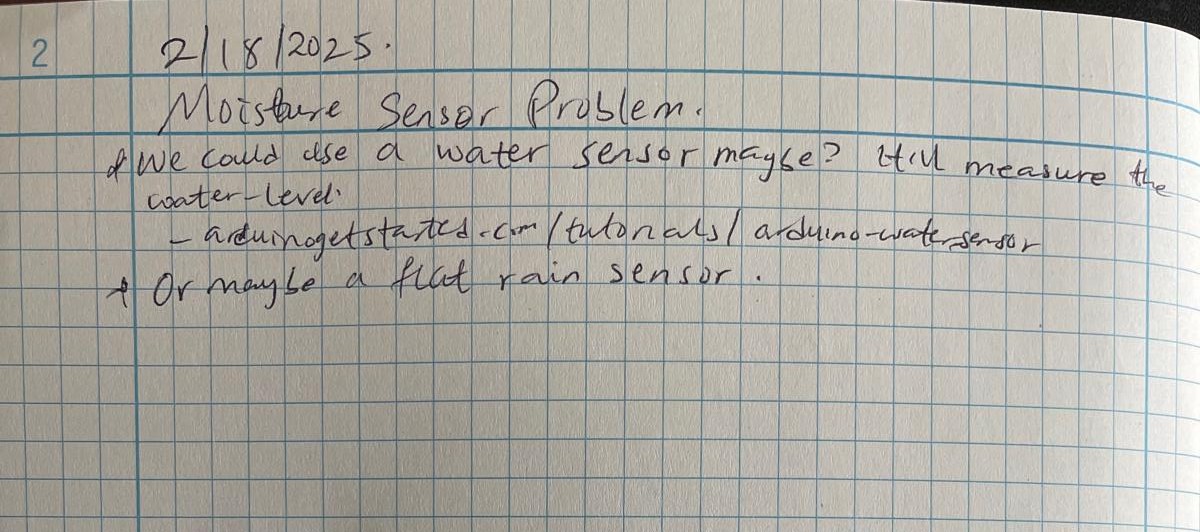 2
2/18/2025.
Moisture Sensor Problem.
* We could use a water sensor maybe? It'll measure the
water-level.
- arduinogetstarted.com/tutorials/arduino-water-sensor
* Or maybe a flat rain sensor.